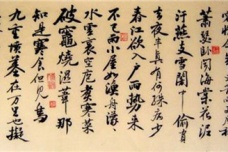 蕭瑟卧聞海棠花泥
汙燕支雪闇中偷負
去夜半真有力何殊少
春江欲入戶雨勢來
不已小屋如漁舟濛
水雲裏空庖煮寒菜
破竈燒濕葦那
知是寒食但見烏
九重墳墓在万里也擬